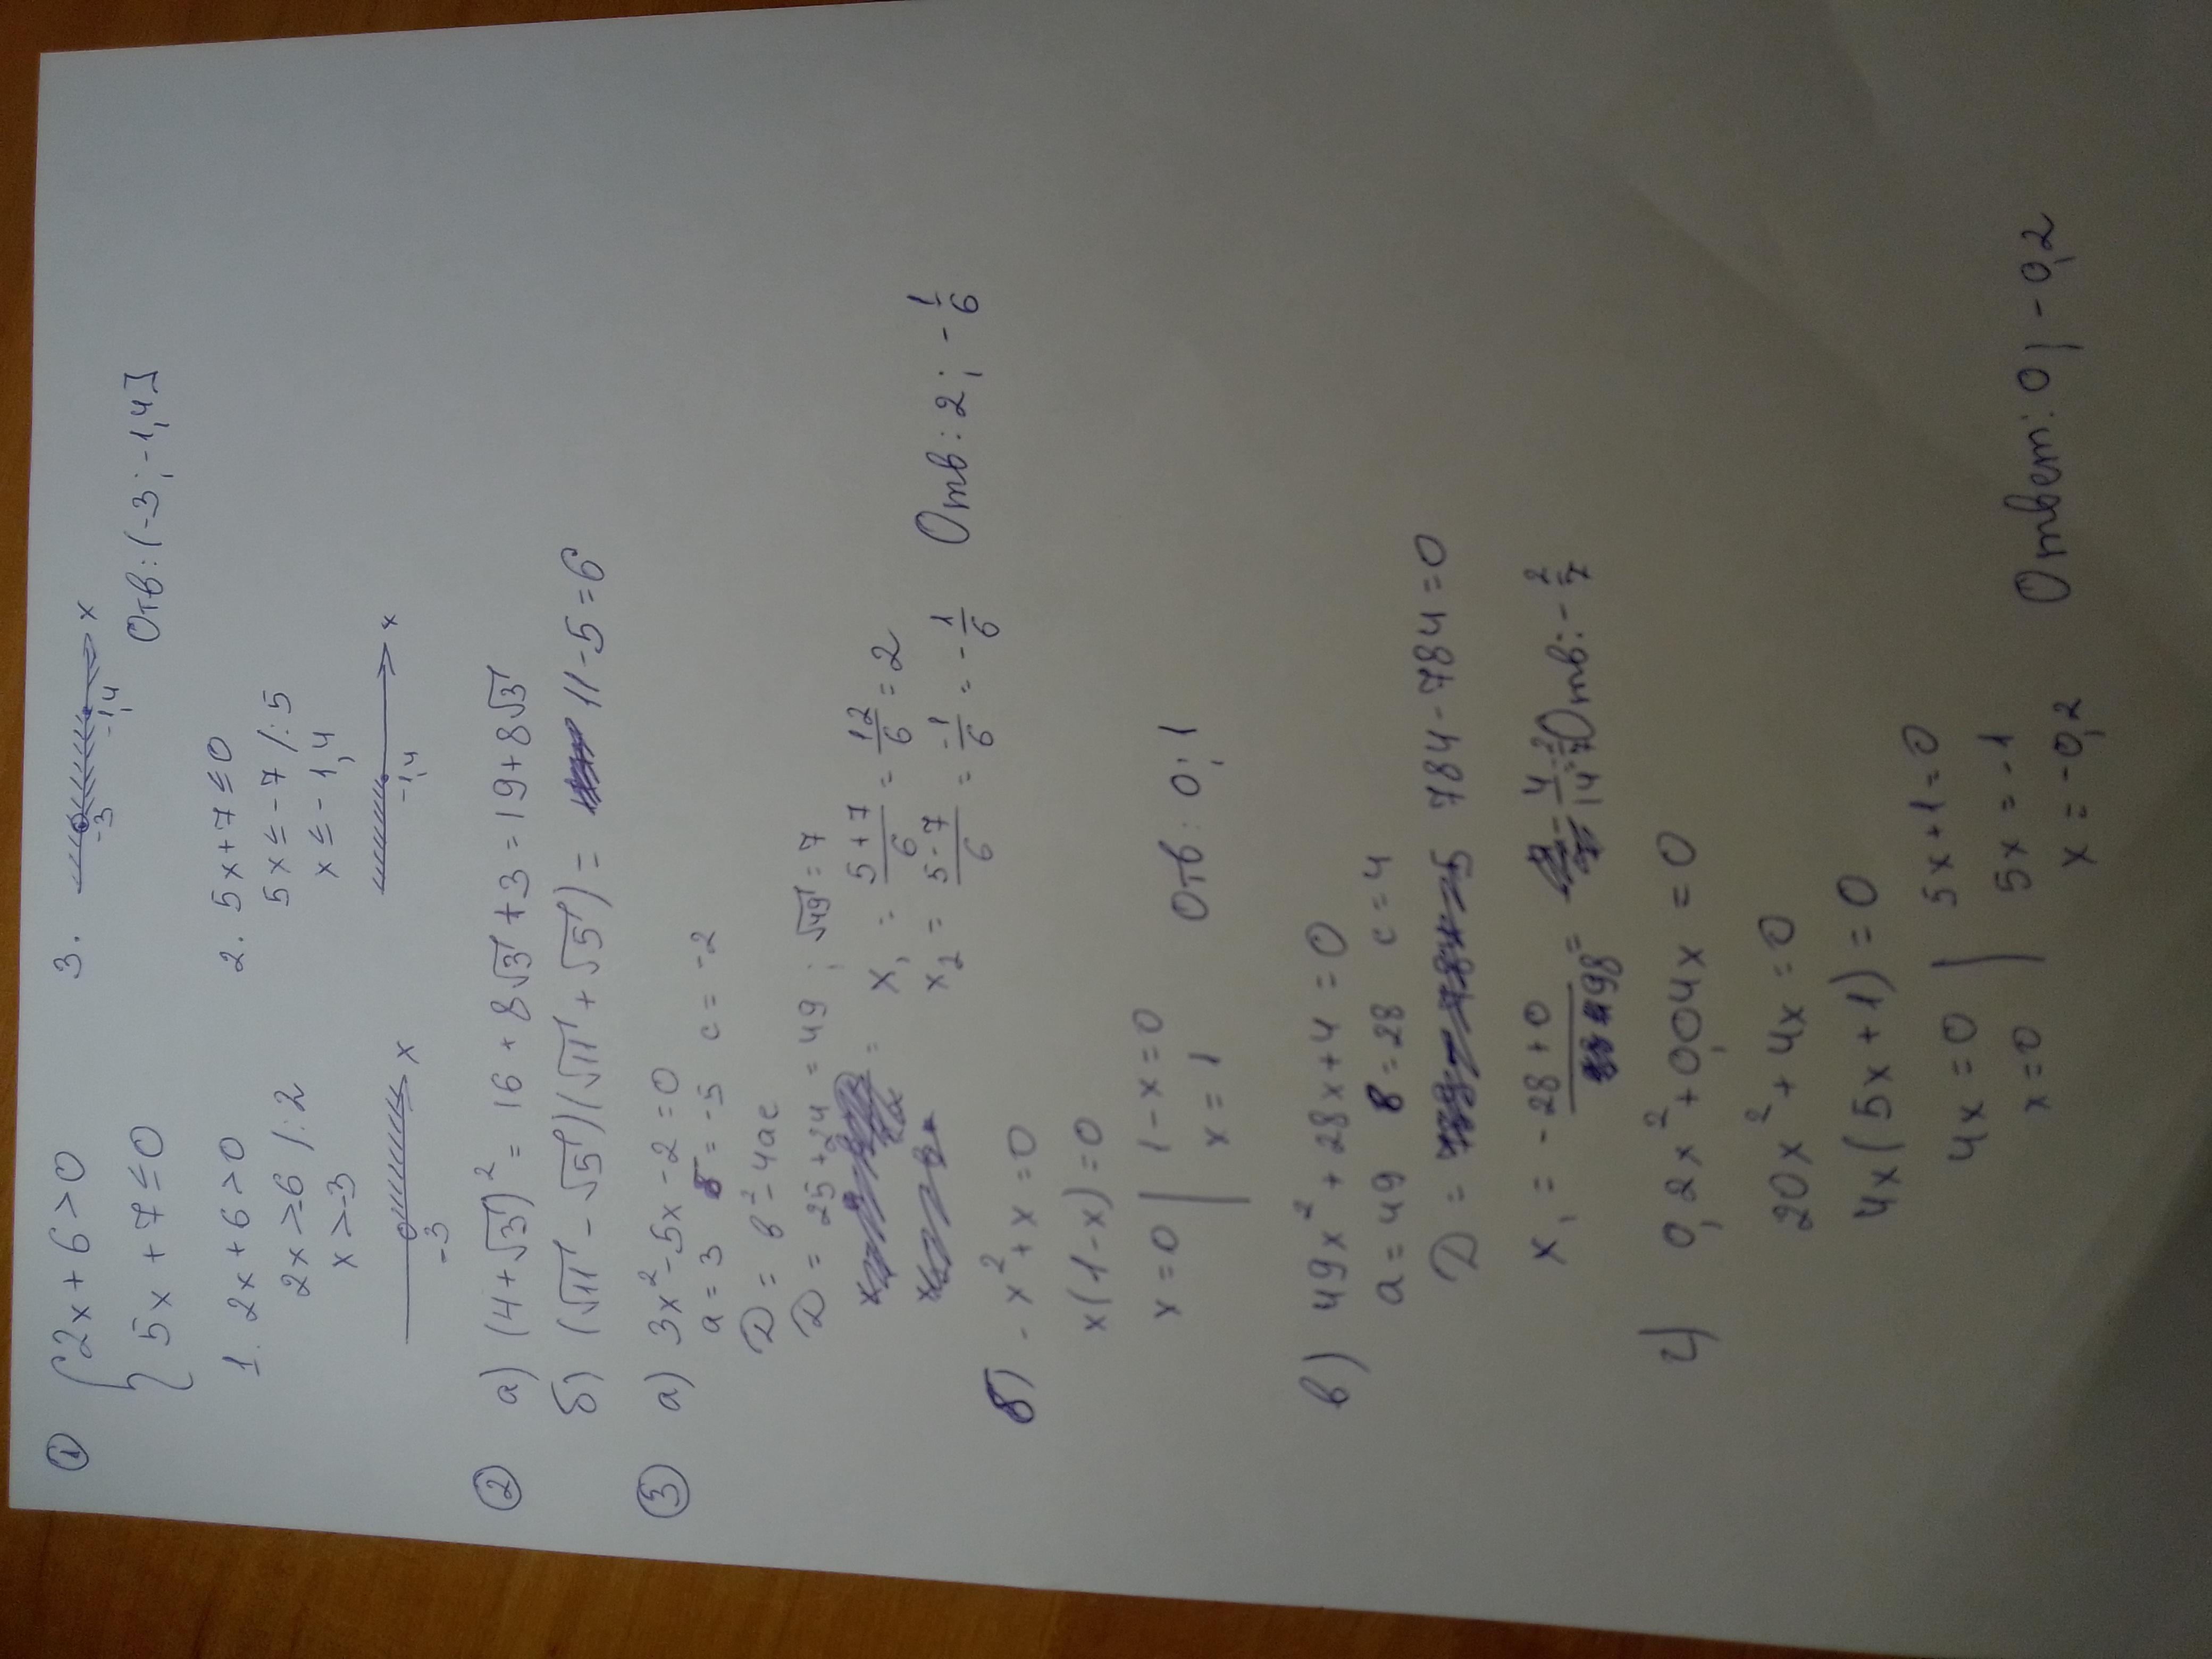 ① { 2x + 6 > 0
5x + 7 ≤ 0
1. 2x + 6 > 0
2x > -6 /:2
x > -3
-3 x
2. 5x + 7 ≤ 0
5x ≤ -7 /:5
x ≤ -1,4
-1,4 x
3. -3 -1,4 x
Отв: (-3; -1,4]
② а) (4+√3)² = 16 + 8√3 + 3 = 19 + 8√3
б) (√11 - √5)(√11 + √5) = 11 - 5 = 6
③ а) 3x² - 5x - 2 = 0
a = 3 в = -5 c = -2
D = в² - 4ac
D = 25 + 24 = 49; √49 = 7
x₁ = (5 + 7)/6 = 12/6 = 2
x₂ = (5 - 7)/6 = -1/6 = -1/6 Отв: 2; -1/6
б) - x² + x = 0
x(1 - x) = 0
x = 0 | 1 - x = 0
x = 1 Отв: 0; 1
в) 49x² + 28x + 4 = 0
a = 49 в = 28 c = 4
D = 784 - 784 = 0
x₁ = (-28 + 0)/98 = -4/14 = -2/7 Отв: -2/7
4) 0,2x² + 0,04x = 0
20x² + 4x = 0
4x(5x + 1) = 0
4x = 0 | 5x + 1 = 0
x = 0 | 5x = -1
x = -0,2 Ответ: 0; -0,2